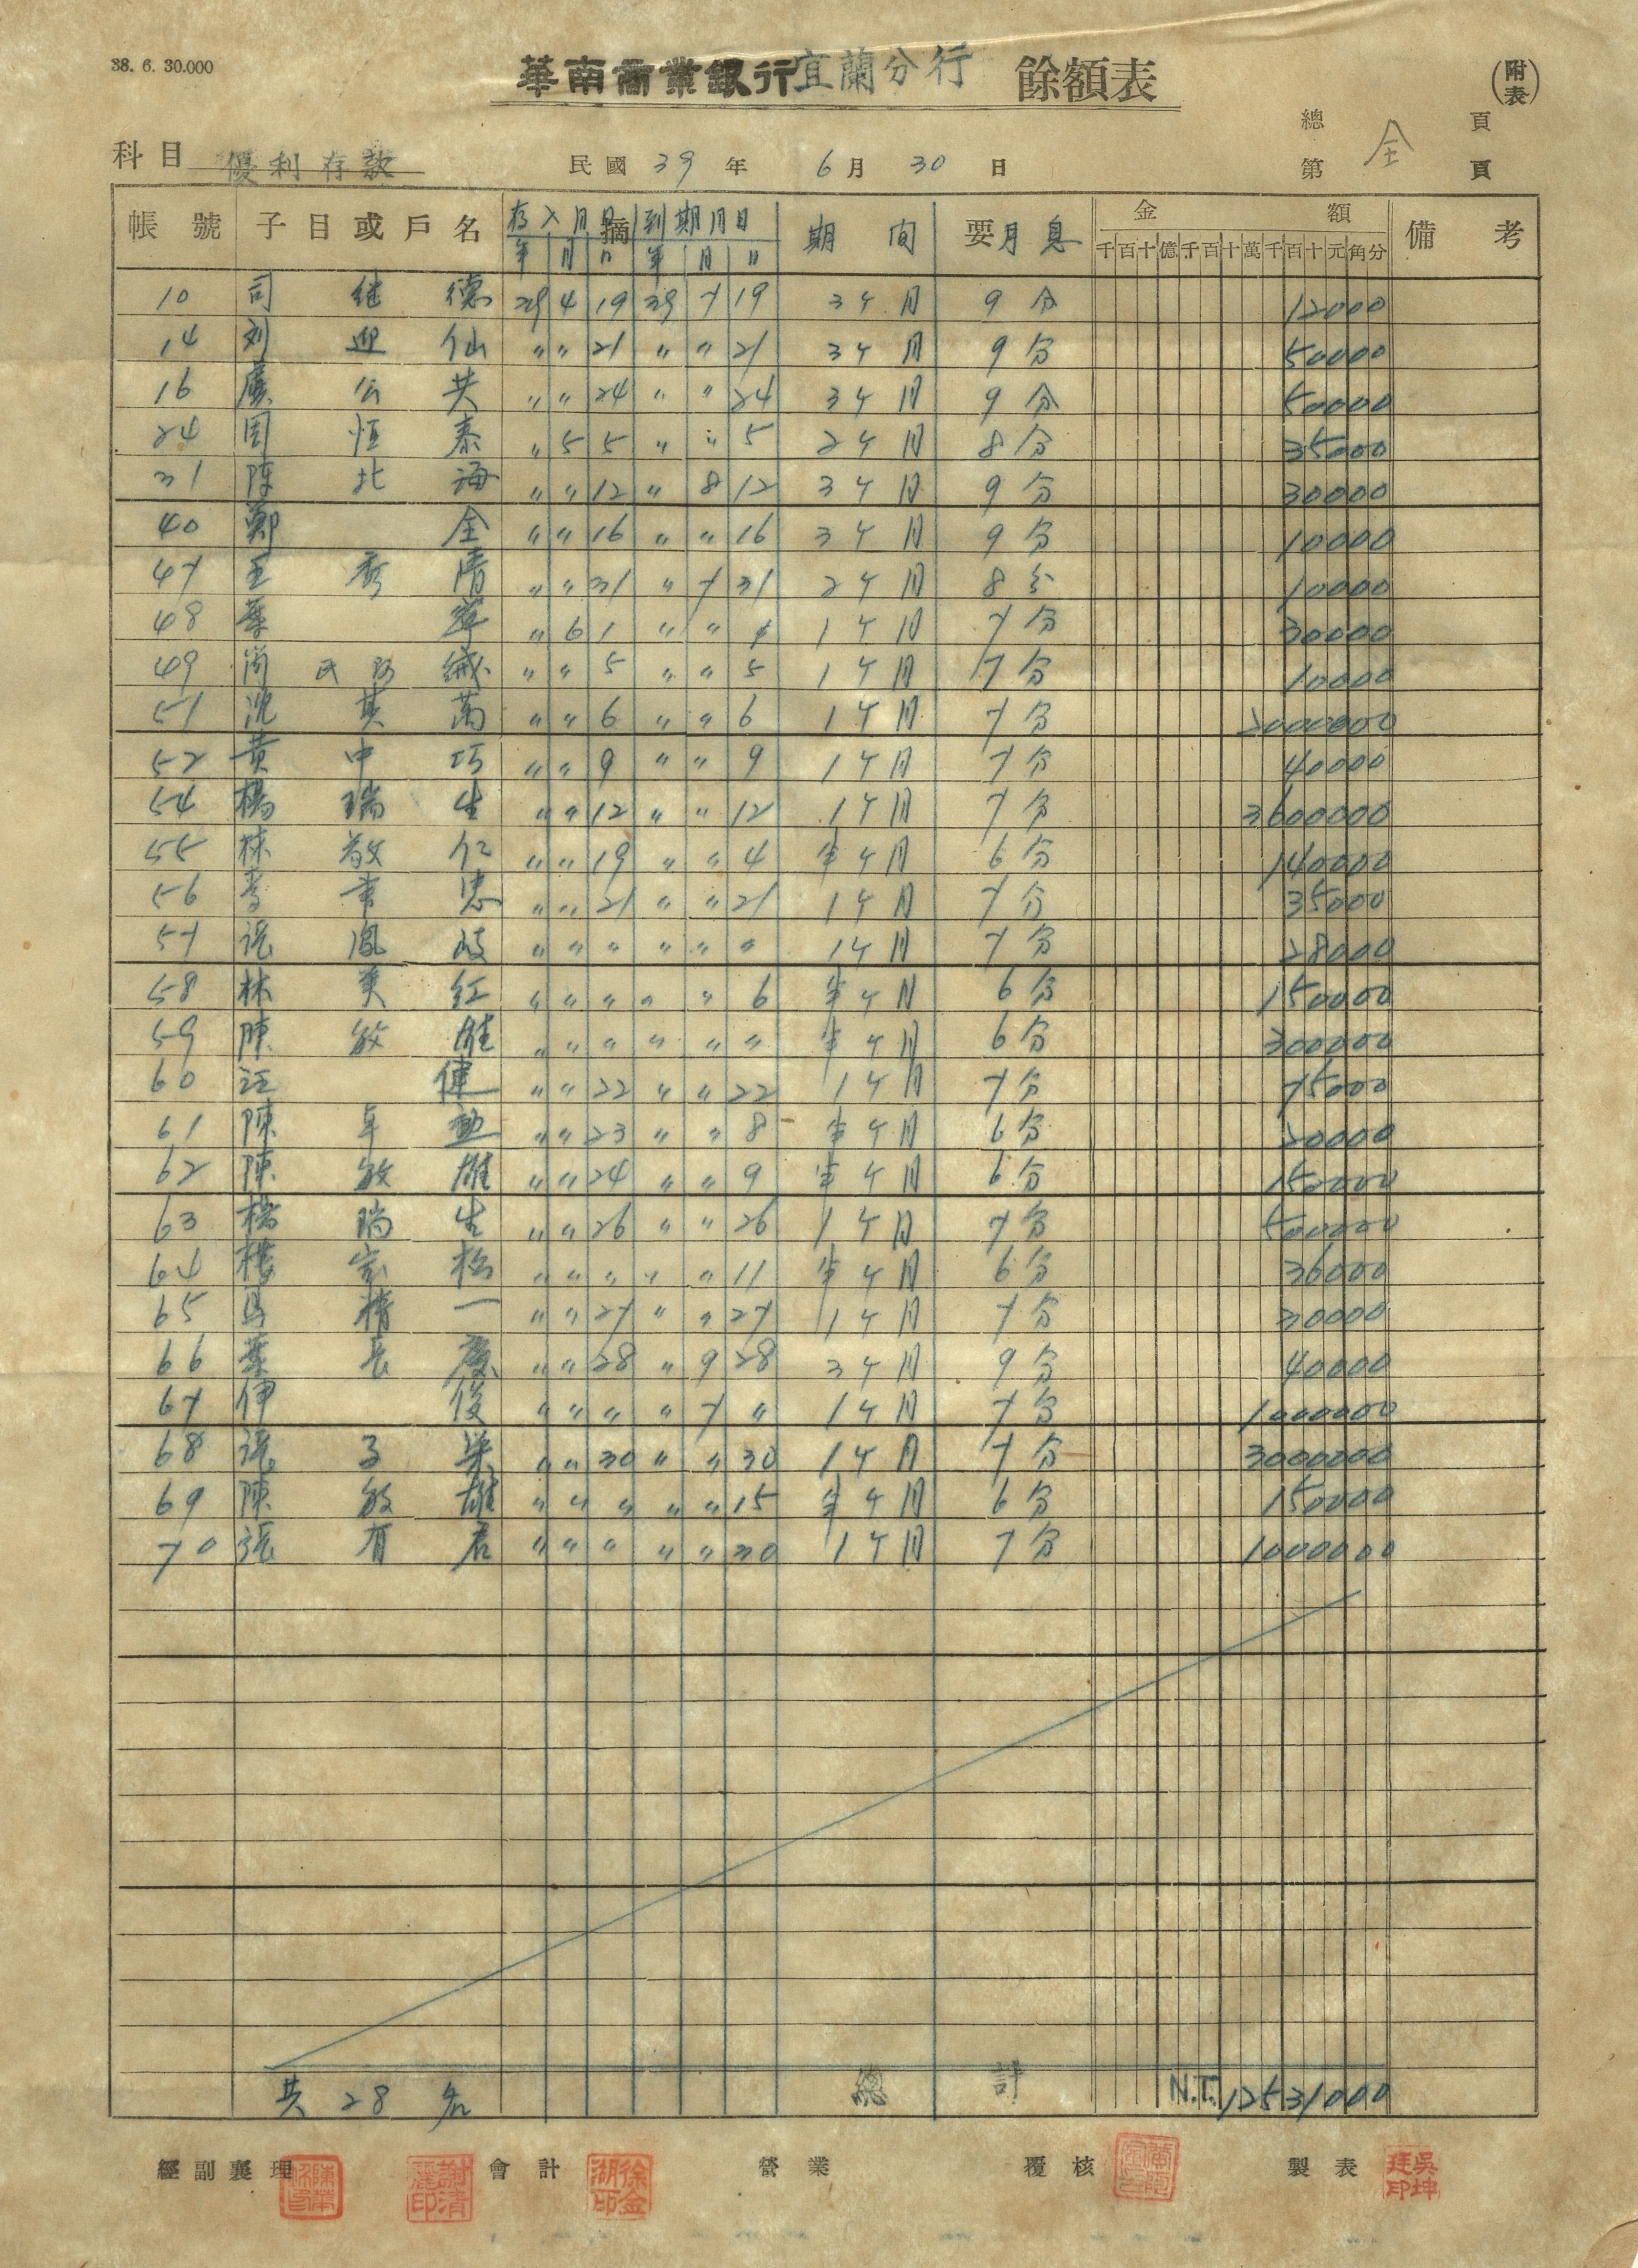 38. 6. 30.000
華南商業銀行宜蘭分行 餘額表
(附表)
總 頁
科目 優利存款 民國 39 年 6 月 30 日 第 全 頁
帳號 子目或戶名 存入月日 摘 到期月日 期間 要 月息 金額 備考
年 月 日 年 月 日 千百十億千百十萬千百十元角分
10 司継德 39 4 19 39 7 19 3ケ月 9分 12000
14 刘迎仙 〃 〃 21 〃 〃 21 3ケ月 9分 50000
16 公共 〃 〃 24 〃 〃 24 3ケ月 9分 50000
24 周恒泰 〃 5 5 〃 〃 5 2ケ月 8分 35000
31 陳北海 〃 〃 12 〃 8 12 3ケ月 9分 30000
40 鄭全 〃 〃 16 〃 〃 16 3ケ月 9分 10000
47 王秀清 〃 〃 31 〃 7 31 2ケ月 8分 10000
48 葉 〃 6 1 〃 〃 1 1ケ月 7分 30000
49 民 〃 〃 5 〃 〃 5 1ケ月 7分 10000
51 沈其 〃 〃 6 〃 〃 6 1ケ月 7分 2000000
52 黄中巧 〃 〃 9 〃 〃 9 1ケ月 7分 40000
54 楊瑞生 〃 〃 12 〃 〃 12 1ケ月 7分 3600000
55 林敬仁 〃 〃 19 〃 〃 4 半ケ月 6分 140000
56 李忠 〃 〃 21 〃 〃 21 1ケ月 7分 35000
57 鳳岐 〃 〃 〃 〃 〃 〃 1ケ月 7分 28000
58 林爽紅 〃 〃 〃 〃 〃 6 半ケ月 6分 150000
59 陳敏雄 〃 〃 〃 〃 〃 〃 半ケ月 6分 300000
60 汪健 〃 〃 22 〃 〃 22 1ケ月 7分 75000
61 陳卓勳 〃 〃 23 〃 〃 8 半ケ月 6分 20000
62 陳敏雄 〃 〃 24 〃 〃 9 半ケ月 6分 150000
63 楊瑞生 〃 〃 26 〃 〃 26 1ケ月 7分 500000
64 樓家松 〃 〃 〃 〃 〃 11 半ケ月 6分 36000
65 馬精一 〃 〃 27 〃 〃 27 1ケ月 7分 30000
66 葉長慶 〃 〃 28 〃 9 28 3ケ月 9分 40000
67 伊俊 〃 〃 〃 〃 7 〃 1ケ月 7分 1000000
68 子 〃 〃 30 〃 〃 30 1ケ月 7分 3000000
69 陳敏雄 〃 〃 〃 〃 〃 15 半ケ月 6分 150000
70 張有君 〃 〃 〃 〃 〃 30 1ケ月 7分 1000000
共 28 名 總計 N.T. 12531000
經副襄理 謝清印 會計 徐金湖印 營業 覆核 製表 吳坤廷印